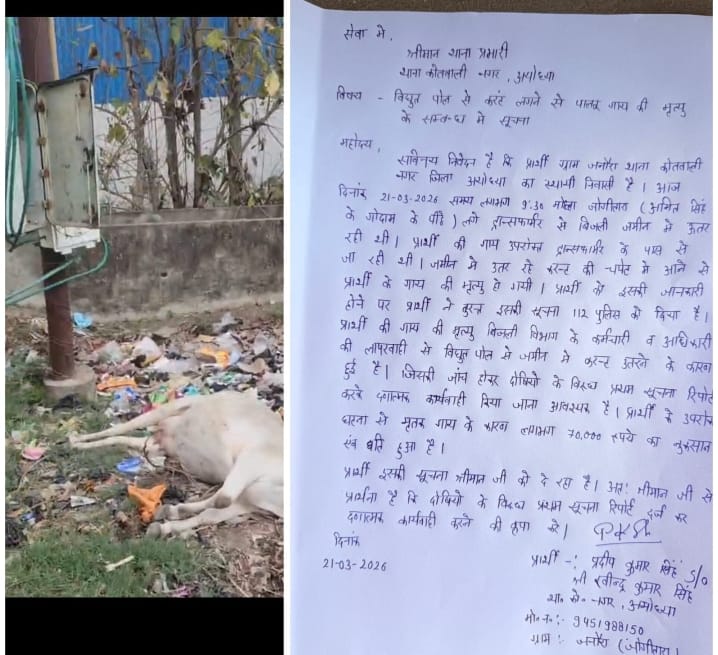 सेवा में,
श्रीमान थाना प्रभारी
थाना कोतवाली नगर, अयोध्या
विषय - विद्युत पोल से करंट लगने से पालतू गाय की मृत्यु
के सम्बन्ध में सूचना
महोदय,
सविनय निवेदन है कि प्रार्थी ग्राम जनौरा थाना कोतवाली
नगर जिला अयोध्या का स्थायी निवासी है। आज
दिनांक 21-03-2026 समय लगभग 9:30 मोहल्ला जोगीतारा (अमित सिंह
के गोदाम के पीछे) लगे ट्रान्सफार्मर से बिजली जमीन में उतर
रही थी। प्रार्थी की गाय उपरोक्त ट्रान्सफार्मर के पास से
जा रही थी। जमीन में उतर रहे करन्ट की चपेट में आने से
प्रार्थी के गाय की मृत्यु हो गयी। प्रार्थी को इसकी जानकारी
होने पर प्रार्थी ने तुरन्त इसकी सूचना 112 पुलिस को दिया है।
प्रार्थी की गाय की मृत्यु बिजली विभाग के कर्मचारी व अधिकारी
की लापरवाही से विद्युत पोल से जमीन में करन्ट उतरने के कारण
हुई है। जिसकी जांच होकर दोषियों के विरुध्द प्रथम सूचना रिपोर्ट
करके दण्डात्मक कार्यवाही किया जाना आवश्यक है। प्रार्थी के उपरोक्त
घटना से मृतक गाय के कारण लगभग 70,000 रुपये का नुकसान
एवं क्षति हुआ है।
प्रार्थी इसकी सूचना श्रीमान जी को दे रहा है। अतः श्रीमान जी से
प्रार्थना है कि दोषियों के विरुध्द प्रथम सूचना रिपोर्ट दर्ज कर
दण्डात्मक कार्यवाही करने की कृपा करें।
दिनांक
21-03-2026
प्रार्थी -: प्रदीप कुमार सिंह S/o
श्री रवीन्द्र कुमार सिंह
था० को० नगर, अयोध्या
मो० न० : 9451988150
ग्राम : जनौरा (जोगीतारा)